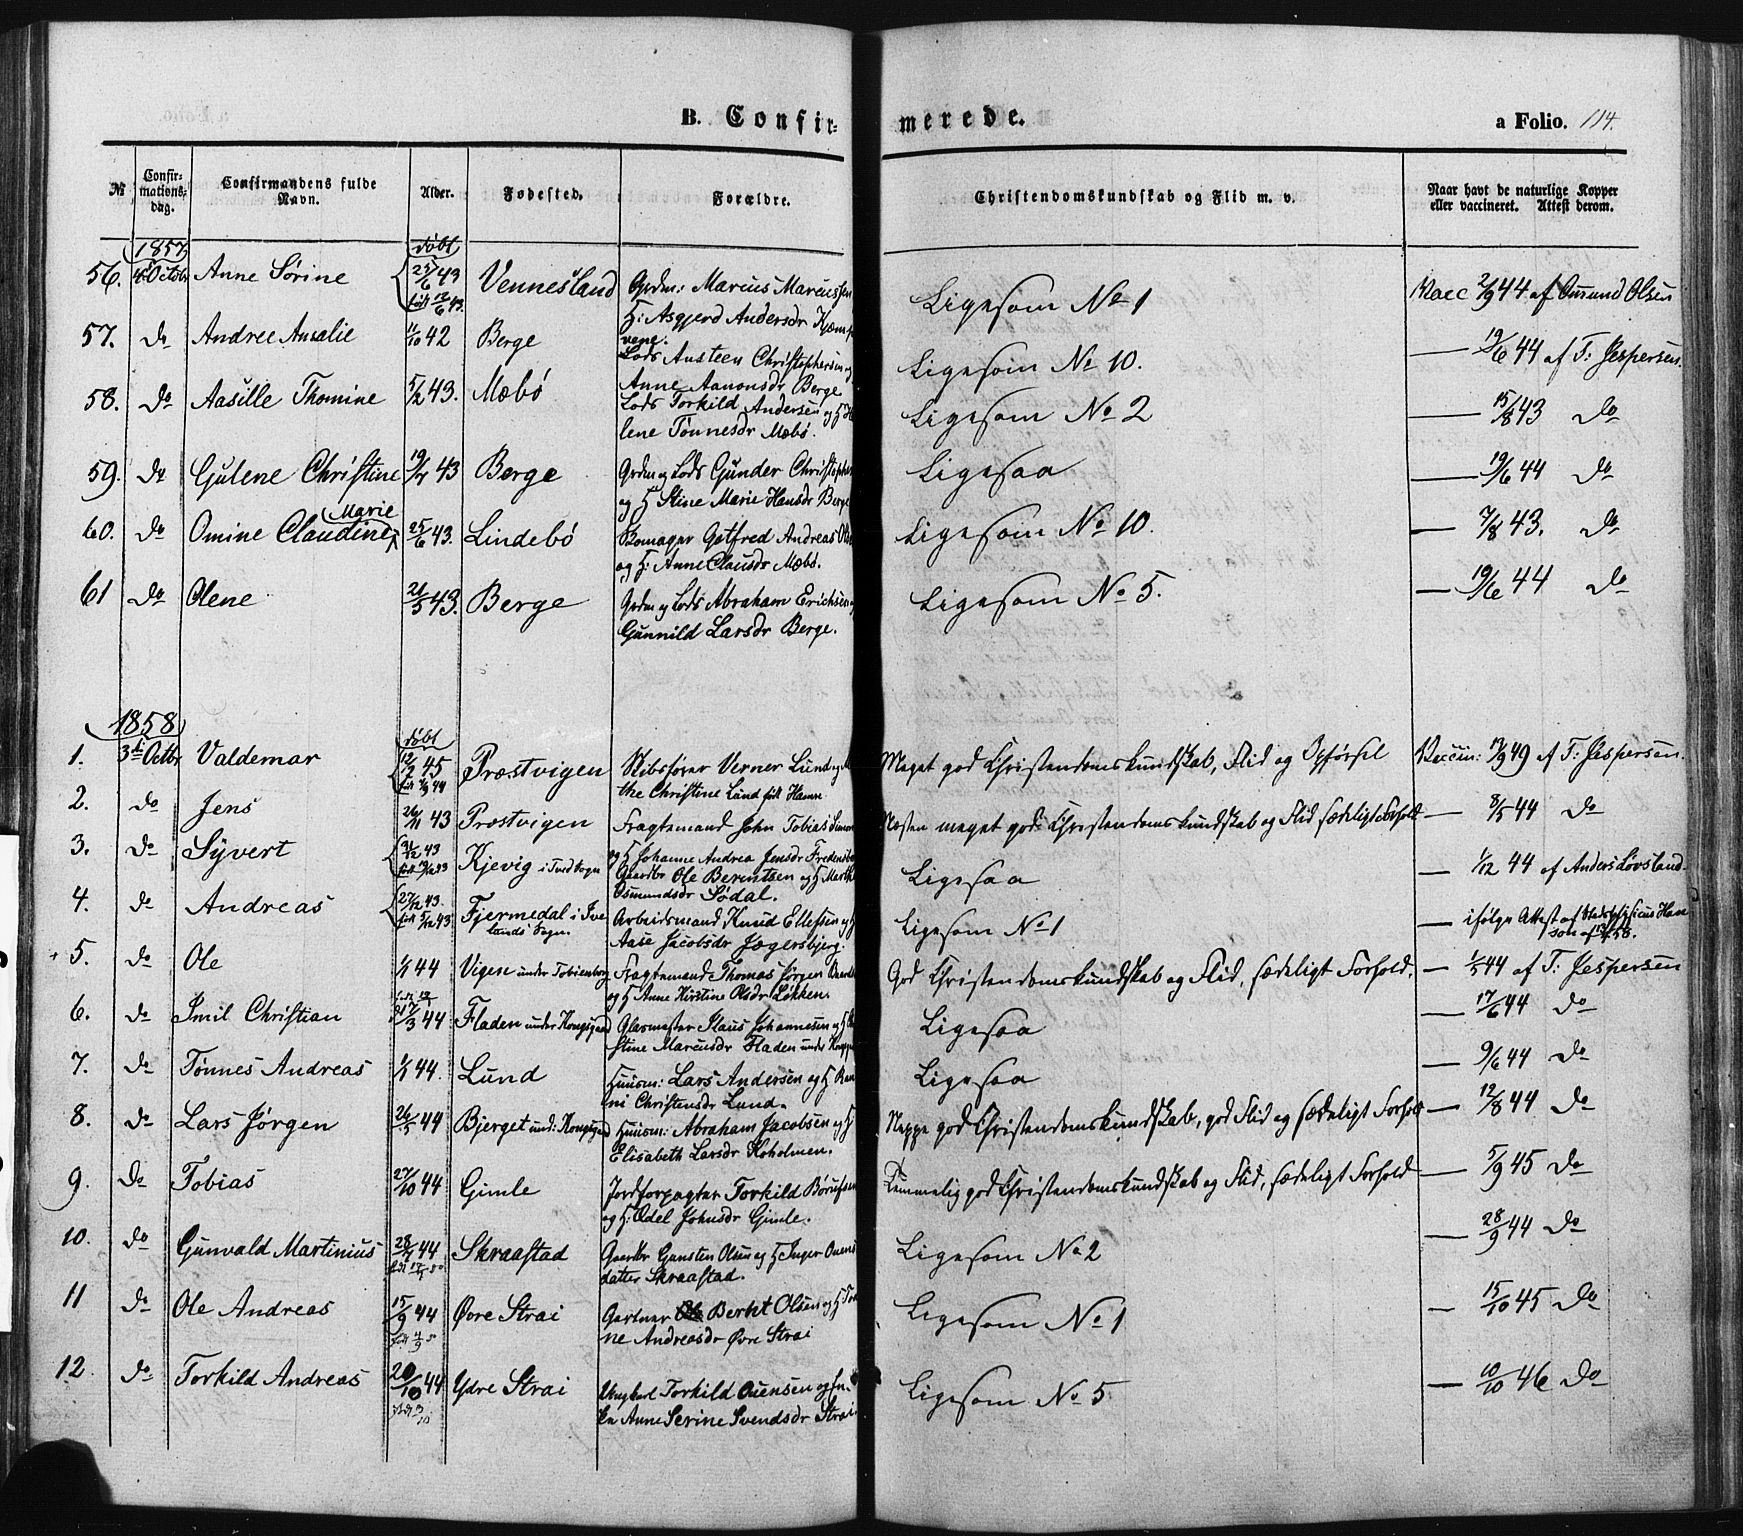 B. Confir-
merede.
a Folio. 114.
№
Confir-
mations-
dag.
Confirmandens fulde
Navn.
Alder.
Fødested.
Forældre.
Christendomskundskab og Flid m. v.
Naar havt de naturlige Kopper
eller vaccineret. Attest derom.
1857 døbt
56. 4de Octobr Anne Sørine 25/6 43 født 12/6 43. Vennesland Grdm: Marcus Marcussen Ligesom No 1 Vacc 2/9 44 af Omund Olsen
H: Asgjerd Andersdr Kjem-
vene.
57. Do Andree Amalie 11/10 42 Berge Lods Austeen Christophersen og Ligesom No 10. — 19/6 44 af T: Jespersen.
Anne Aanonsdr Berge
58. Do Aasille Thomine 5/2 43. Mæbø Lods Torkild Andersen og H He- Ligesom No 2 — 15/8 43 Do
lene Tønnesdr Mæbø.
59. Do Gulene Christine 19/7 43 Berge Grdm og Lods Gunder Christophers Ligesaa — 19/6 44 Do
og H Stine Marie Hansdr Berge
60. Do Omine Claudine Marie 25/6 43. Lindebø Bomager Gotfred Andreas Ligesom No 10. — 7/8 43. Do
og H: Anne Clausdr Mæbø.
61 Do Olene 21/5 43. Berge Grdm og Lods Abraham Erichsen og Ligesom No 5. — 19/6 44 Do
Gunnild Larsdr Berge.
1858 døbt
1. 3die Octbr Valdemar 12/7 45 Præstvigen Skibsfører Verner Lund og Meget god Christendomskundskab, Flid og Opførsel Vaccin: 17/9 49 af T: Jespersen.
the Christine Lund født Hamre
2. Do Jens 26/11 43 Præstvigen Fragtemand John Tobias Næsten meget god Christendomskundskab og Flid sædeligt Forhold — 8/5 44 Do
og H Johanne Andrea Jensdr
3. Do Syvert 31/12 43 Kjevig i Tveid Sogn Gaardbr Ole Berentsen og H Marthe Ligesaa — 1/12 44 af Anders Løvsland.
Osmundsdr Sødal.
4. Do Andreas 27/12 43. født 5/12 43 Fjermedal i Ive- Arbeidsmand Knud Ellefsen og H Ligesom No 1 — ifølge Attest af Stadsphysicus Han-
lands Sogn. Aase Jacobsdr Jægersbjerg. son af 58.
5. Do Ole 1/1 44 Vigen under Tobienborg Fragtemand Thomas Jørgen God Christendomskundskab og Flid, sædeligt Forhold. — 1/5 44 af T: Jespersen
og H Anne Kirstine Olsdr Løkken.
6. Do Emil Christian 17/3 44 Fladen under Kongsgaard Glasmester Klaus Johannesen og H Ligesaa — 17/6 44 Do
stine Marcusdr Fladen under
7. Do Tønnes Andreas 1/1 44. Lund Huusm: Lars Andersen og H Ran- Ligesaa — 9/6 44 Do
ni Christensdr Lund.
8. Do Lars Jørgen 26/5 44 Bjerget und: Kongsgaard Huusm: Abraham Jacobsen og H Neppe god Christendomskundskab, god Flid og sædeligt Forhold — 12/8 44 Do
Elisabeth Larsdr Koholmen.
9. Do Tobias 27/10 44 Gimle Jordforpagter Torkild Børufsen Temmelig god Christendomskundskab og Flid, sædeligt Forhold — 5/9 45 Do
og H: Odel Johnsdr Gimle.
10. Do Gunvald Martinius 28/7 44 Skraastad Gaardbr Gunsten Olsen og H Inger Ouens- Ligesom No 2 — 28/9 44 Do
datter Skraastad.
11 Do Ole Andreas 15/9 44 født 4/9 Øvre Strai Gartner Berent Olsen og H Tor- Ligesom No 1 — 15/10 45 Do
ne Andreasdr Øvre Strai
12 Do Torkild Andreas 20/10 44 født 3/10 Ydre Strai Ungkarl Torkild Ouensen og En- Ligesom No 5 — 10/10 46 Do
ke Anne Serine Svendsdr Strai